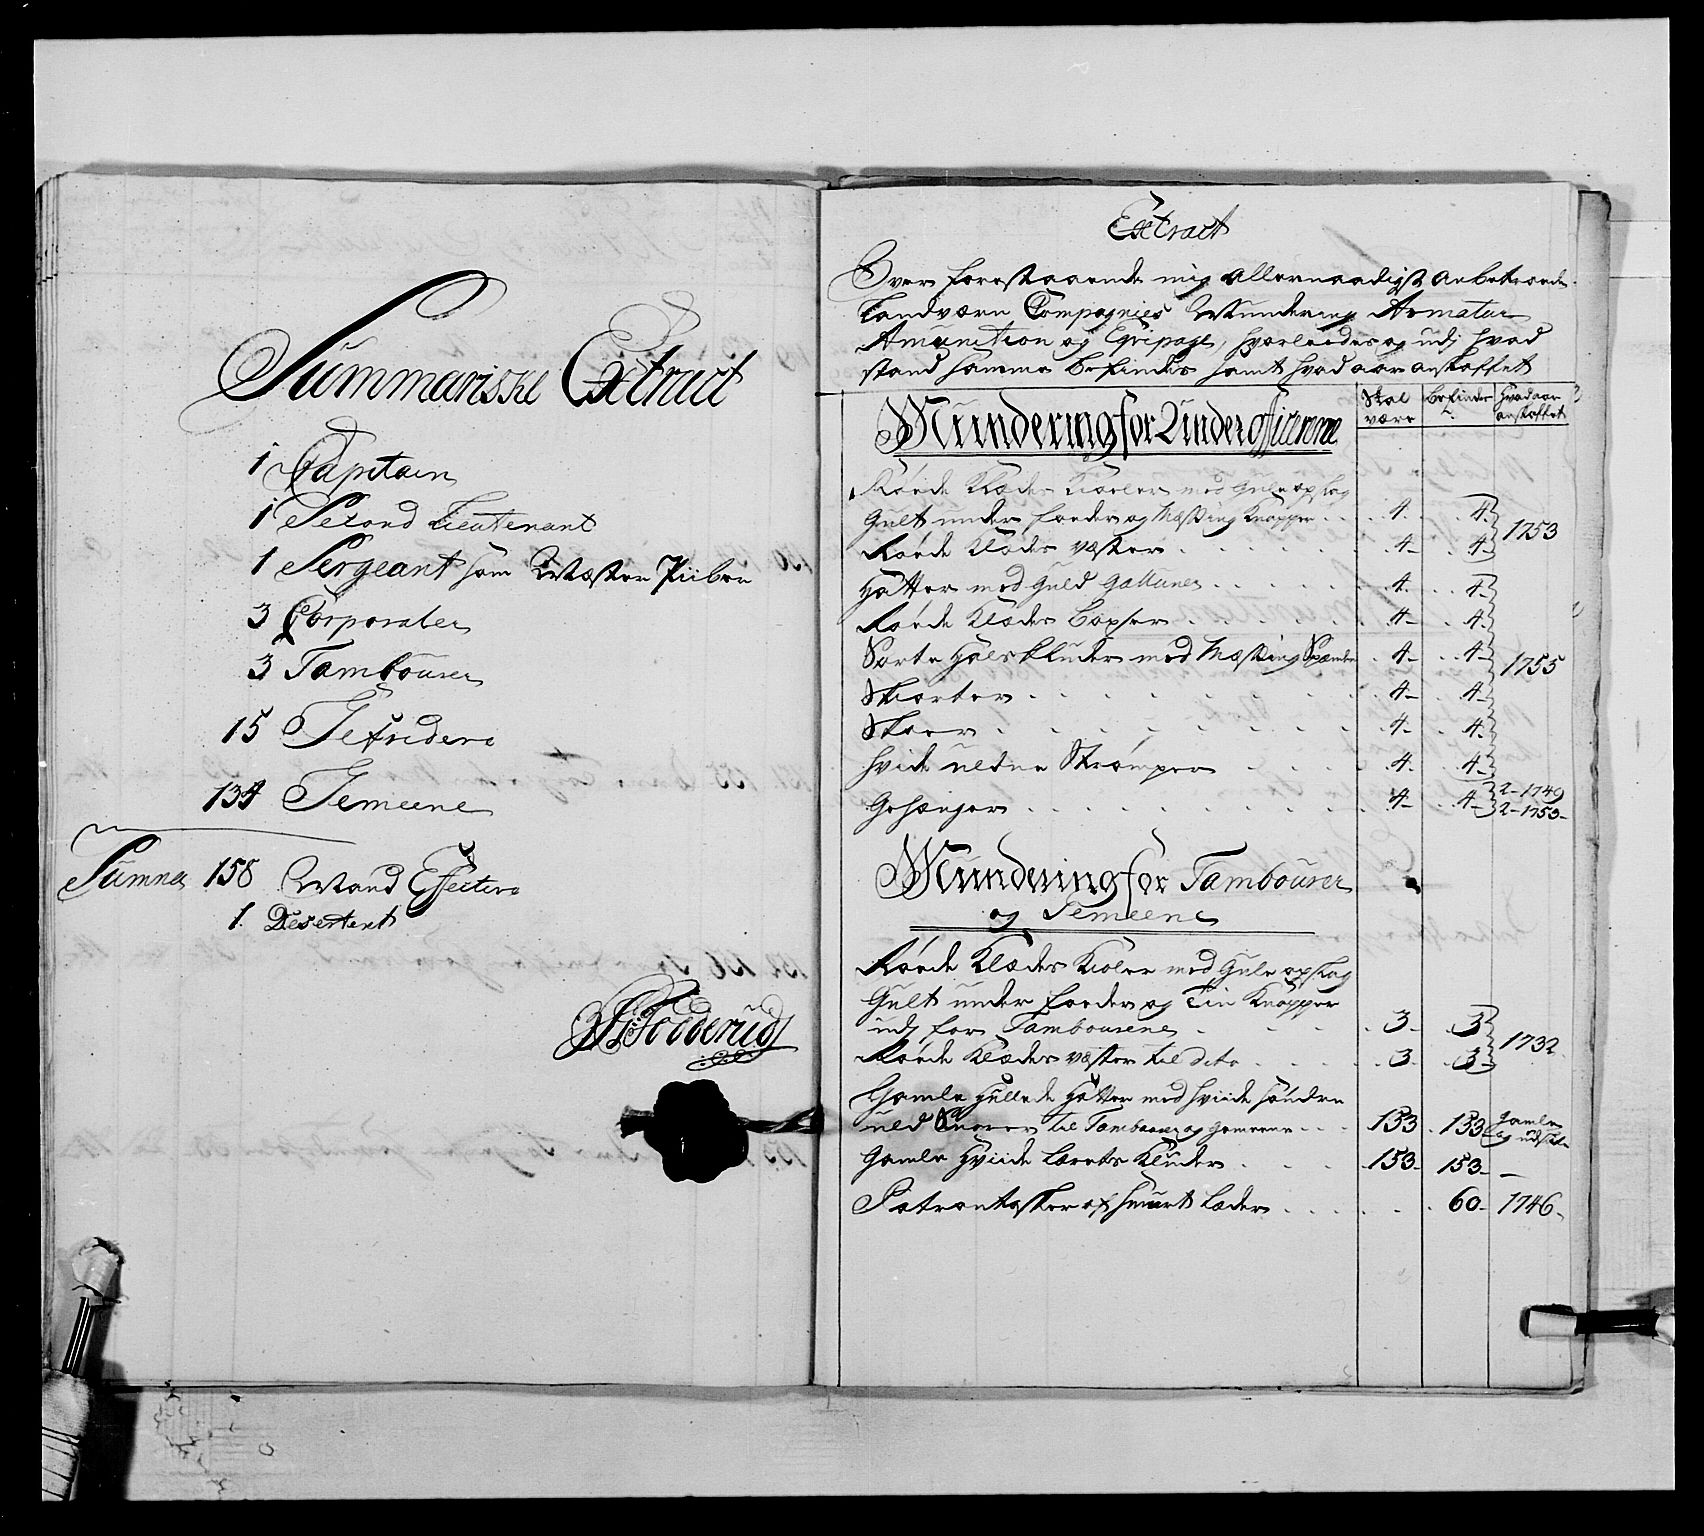 Summariske Extract
1 Capitain
1 Second Lieutenant
1 Sergeant som Mæster Piiber
3 Corporaler
3 Tambourer
15 Gefridere
134 Gemeene
Summa 158 Mand Effective
1. Desertert
Extract
Over forestaaende mig allernaadigst anbetroede
Landværn Compagnies Mundering Armatur
Amunition og Eqvipage, hvorledes og udj hvad
stand samme befindes samt hvad aar anskaffet
Mundering for Underofficerene
Skal være
Befindes
Hvad aar anskaffet
Røede Klædes Kioler med Gule opslag
Gult under foeder og Mæssing Knapper 4. 4. 1753
Røede Klædes væster 4 4
Hatter med Guld Galluner 4. 4. 1755
Røede Klædes boxser 4 4.
Sorte Halskluder med Mæssing Spænder 4 4
Skiorter 4 4
Skoer 4 4
Hvide uldne Strømper 4. 4.
Gehænger 4 4 2-1749
2-1753
Mundering for Tambourer
og Gemeene
Røede Klædes Kioler med Gule opslag
Gult under foeder og Tin Knapper
udj for Tambourene 3 3 1732
Røede Klædes væster til dito 3 3
Gamle Hullede Hatter med hviide Søndre
uld Snorer til Tambourer og gemeene 153 153 Gamle
og udslidte
Gamle Hviide Lærets Kluder 153 153 —
Patrontasker af smurt Læder 60 1746